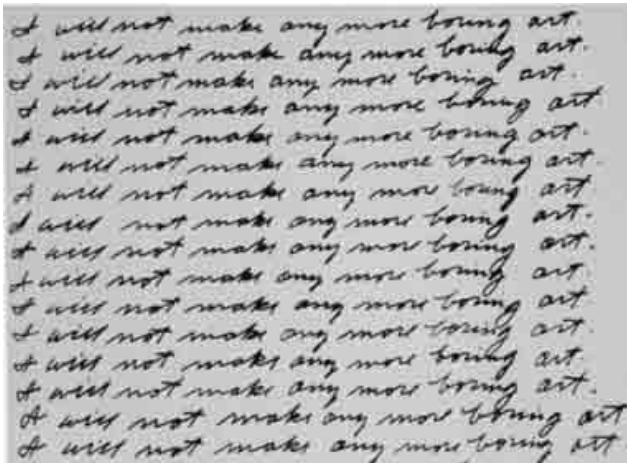 I will not make any more boring art.
I will not make any more boring art.
I will not make any more boring art.
I will not make any more boring art
I will not make any more boring art.
I will not make any more boring art.
I will not make any more boring art
I will not make any more boring art.
I will not make any more boring art.
I will not make any more boring art.
I will not make any more boring art
I will not make any more boring art.
I will not make any more boring art.
I will not make any more boring art.
I will not make any more boring art
I will not make any more boring art.